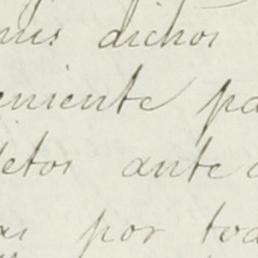 mis dichos
eniente pa
etos ante
as por tod